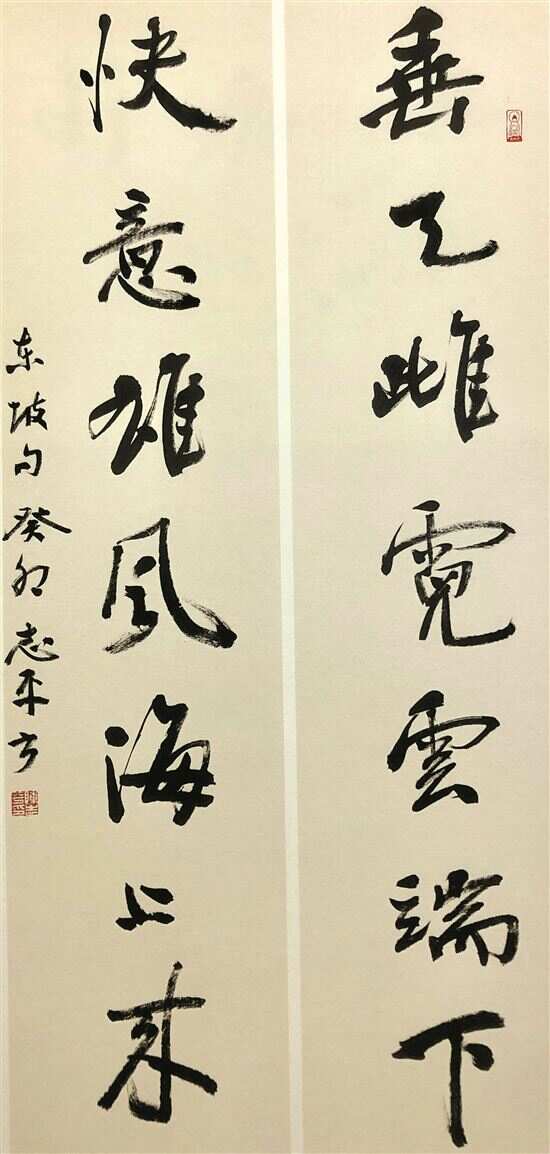 垂天雌霓雲端下
快意雄风海上来
东坡句癸卯志平书